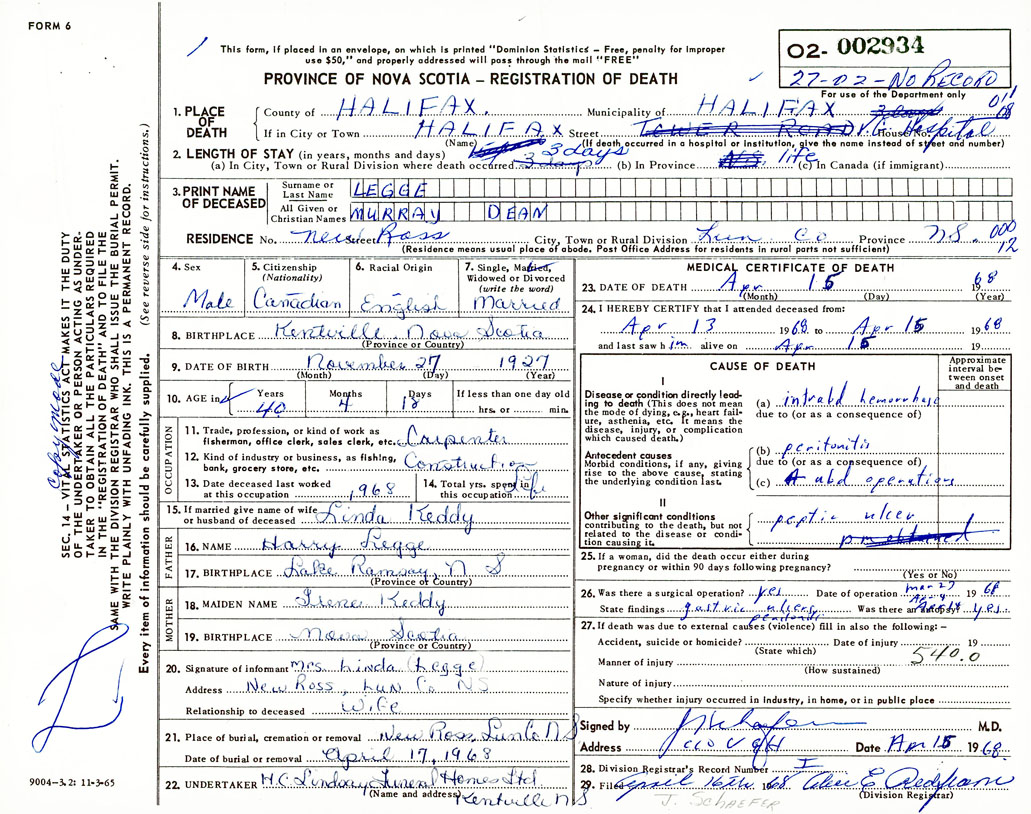 FORM 6
This form, if placed in an envelope, on which is printed "Dominion Statistics – Free, penalty for improper
use $50," and properly addressed will pass through the mail "FREE"
O2- 002934
27-02-NO RECORD
For use of the Department only
PROVINCE OF NOVA SCOTIA – REGISTRATION OF DEATH
1. PLACE OF DEATH
County of HALIFAX. Municipality of HALIFAX
If in City or Town HALIFAX Street TOWER ROAD V.G. Hospital House No.
(Name) (If death occurred in a hospital or Institution, give the name instead of street and number)
2. LENGTH OF STAY (in years, months and days)
(a) In City, Town or Rural Division where death occurred 3 days (b) In Province life (c) In Canada (if immigrant)
3. PRINT NAME OF DECEASED
Surname or Last Name LEGGE
All Given or Christian Names MURRAY DEAN
RESIDENCE No. New Ross Street City, Town or Rural Division Lun Co Province N.S. 000
12
(Residence means usual place of abode, Post Office Address for residents in rural parts not sufficient)
4. Sex Male
5. Citizenship (Nationality) Canadian
6. Racial Origin English
7. Single, Married, Widowed or Divorced (write the word) Married
8. BIRTHPLACE Kentville, Nova Scotia
(Province or Country)
9. DATE OF BIRTH November 27 1927
(Month) (Day) (Year)
10. AGE in Years 40 Months 4 Days 18 If less than one day old hrs. or min.
OCCUPATION
11. Trade, profession, or kind of work as fisherman, office clerk, sales clerk, etc. Carpenter
12. Kind of industry or business, as fishing, bank, grocery store, etc. Construction
13. Date deceased last worked at this occupation 1968
14. Total yrs. spent in this occupation Life
15. If married give name of wife or husband of deceased Linda Keddy
FATHER
16. NAME Harry Legge
17. BIRTHPLACE Lake Ramsay, N S
(Province or Country)
MOTHER
18. MAIDEN NAME Irene Keddy
19. BIRTHPLACE Nova Scotia
(Province or Country)
20. Signature of informant Mrs. Linda (Legge)
Address New Ross, Lun Co NS
Relationship to deceased Wife
21. Place of burial, cremation or removal New Ross Lun Co N.S
Date of burial or removal April 17, 1968
22. UNDERTAKER H.C. Lindsay Funeral Homes Ltd.
(Name and address) Kentville NS
MEDICAL CERTIFICATE OF DEATH
23. DATE OF DEATH Apr 15 1968
(Month) (Day) (Year)
24. I HEREBY CERTIFY that I attended deceased from:
Apr 13 1968 to Apr 15 1968
and last saw him alive on Apr 15 19
CAUSE OF DEATH
Approximate interval between onset and death
I
Disease or condition directly leading to death (This does not mean the mode of dying, e.g., heart failure, asthenia, etc. It means the disease, injury, or complication which caused death.)
(a) intrabd hemorrhage
due to (or as a consequence of)
Antecedent causes
Morbid conditions, if any, giving rise to the above cause, stating the underlying condition last.
(b) peritonitis
due to (or as a consequence of)
(c) abd operations
II
Other significant conditions contributing to the death, but not related to the disease or condition causing it.
peptic ulcer
25. If a woman, did the death occur either during pregnancy or within 90 days following pregnancy?
(Yes or No)
26. Was there a surgical operation? yes Date of operation Mar 27 Apr 4 1968
State findings gastric ulcers peritonitis Was there an autopsy? yes.
27. If death was due to external causes (violence) fill in also the following: –
Accident, suicide or homicide? Date of injury 19
(State which)
540.0
Manner of injury
(How sustained)
Nature of injury
Specify whether injury occurred in Industry, in home, or in public place
Signed by J Schaefer M.D.
Address c/o V G H Date Apr 15 1968.
28. Division Registrar's Record Number I
29. Filed April 16th 1968
(Division Registrar)
J. SCHAEFER
SEC. 14 – VITAL STATISTICS ACT MAKES IT THE DUTY
OF THE UNDERTAKER OR PERSON ACTING AS UNDER-
TAKER TO OBTAIN ALL THE PARTICULARS REQUIRED
IN THE "REGISTRATION OF DEATH" AND TO FILE THE
SAME WITH THE DIVISION REGISTRAR WHO SHALL ISSUE THE BURIAL PERMIT.
WRITE PLAINLY WITH UNFADING INK. THIS IS A PERMANENT RECORD.
Every item of information should be carefully supplied. (See reverse side for instructions.)
Copy made
9004-3.2: 11-3-65